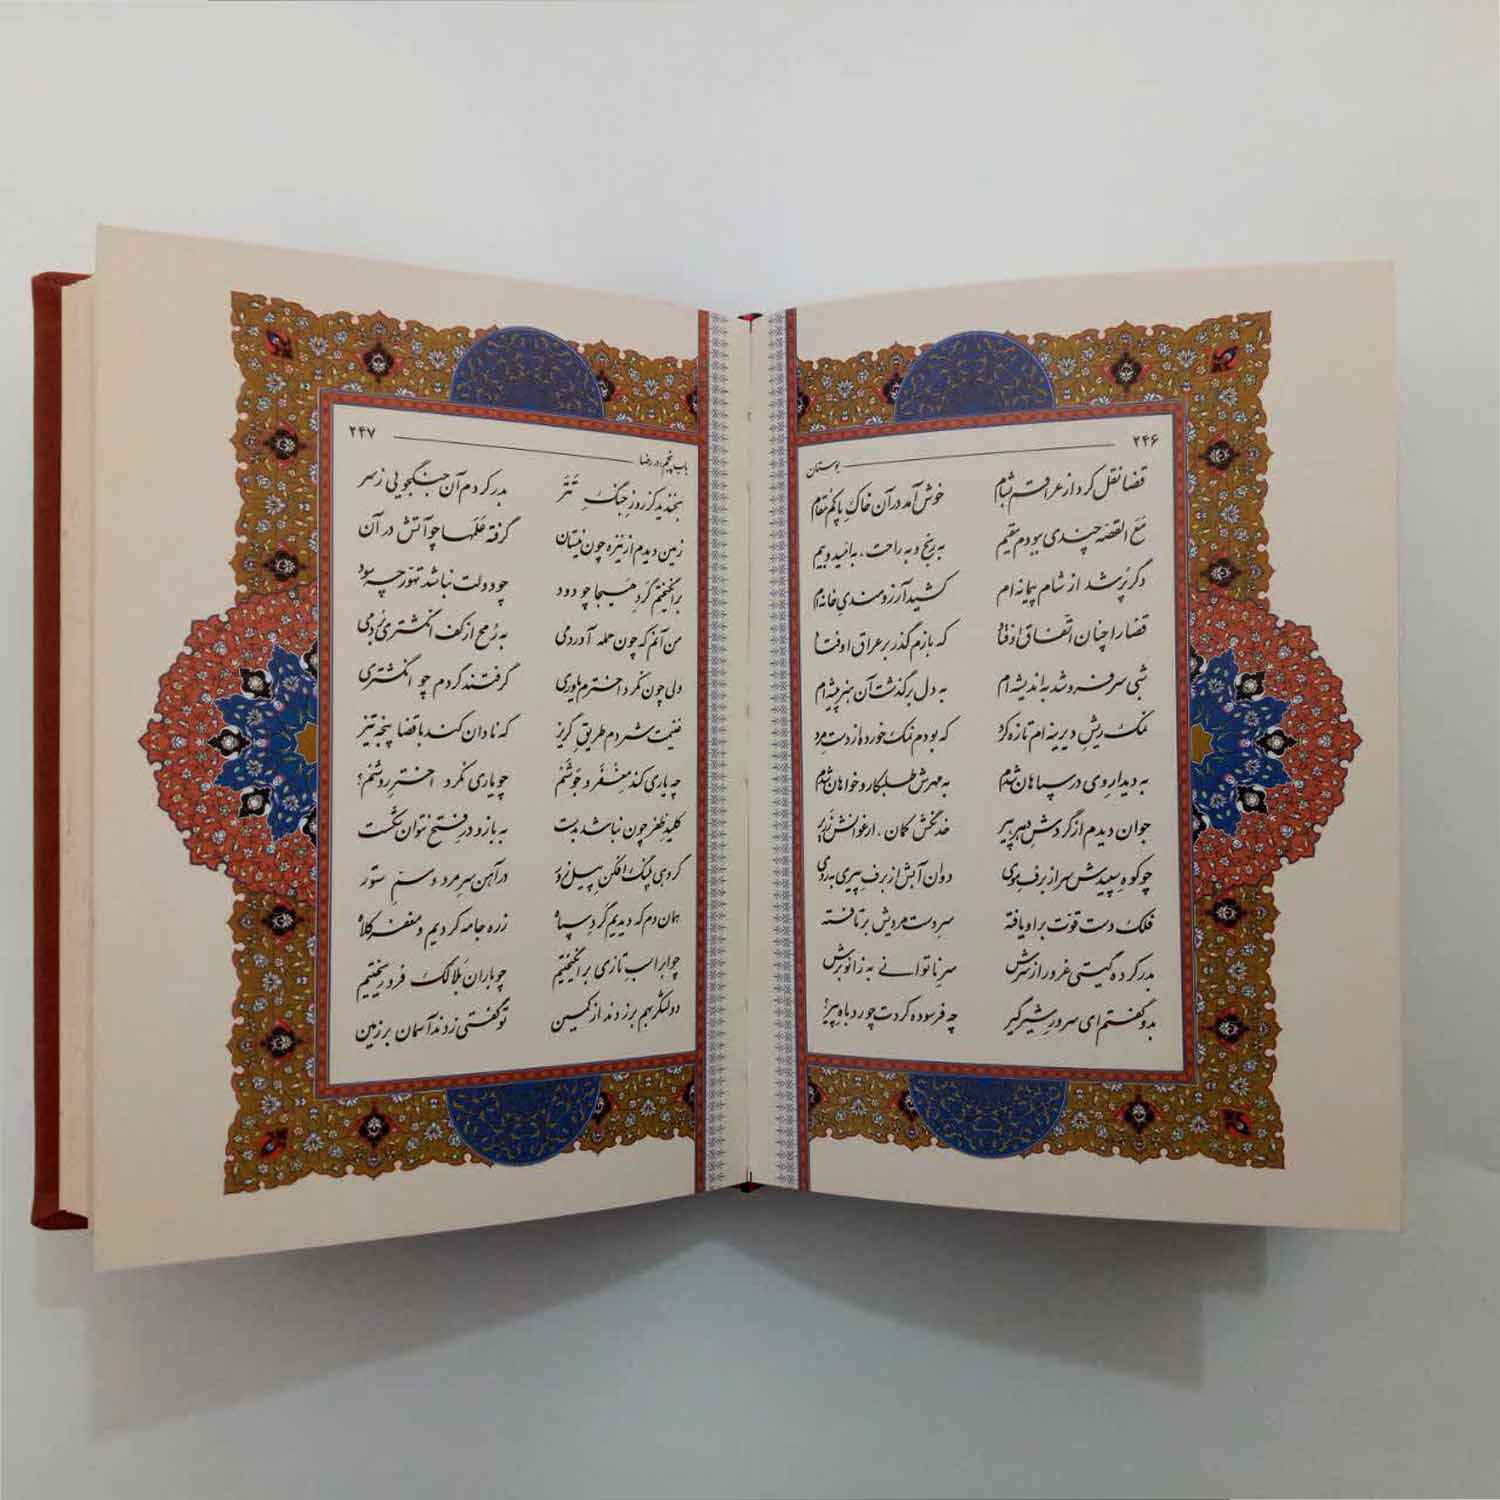 ۲۴۶ بوستان
قضا نقل کرد از عراقم به شام خوش آمد در آن خاکِ پاکم مقام
مَعَ القصه چندی ببودم مقیم به رنج و به راحت، به امید و بیم
دگر پُر شد از شام پیمانه‌ام کشید آرزومندیِ خانه‌ام
قضا را چنان اتّفاق اوفتاد که بازم گذر بر عراق اوفتاد
شبی سر فرو شد به اندیشه‌ام به دل برگذشت آن هنرپیشه‌ام
نمک ریش دیرینه‌ام تازه کرد که بودم نمک خورده از دست مرد
به دیدار وی در سپاهان شدم به مهرش طلبکار و خواهان شدم
جوان دیدم از گردش دهر، پیر خدنگش کمان، ارغوانش زریر
چو کوه سپیدش سر از برف موی دوان آبش از برف پیری به روی
فلک دست قوّت بر او یافته سرِ دست مردیش برتافته
بدر کرده گیتی غرور از سرش سرِ ناتوانی به زانو برش
بدو گفتم ای سرورِ شیرگیر چه فرسوده کردت چو روباهِ پیر؟
باب پنجم، در رضا ۲۴۷
بخندید کز روزِ جنگِ تَتَر بدر کردم آن جنگجویی ز سر
زمین دیدم از نیزه چون نیستان گرفته عَلَمها چو آتش در آن
برانگیختم گَردِ هَیجا چو دود چو دولت نباشد تهوّر چه سود
من آنم که چون حمله آوردمی به رُمح از کف انگشتری بُردمی
ولی چون نکرد اخترم یاوری گرفتند گردم چو انگشتری
غنیمت شمردم طریقِ گریز که نادان کند با قضا پنجه تیز
چه یاری کند مِغْفَر و جَوشَنم چو یاری نکرد اخترِ روشنم؟
کلیدِ ظفر چون نباشد به دست به بازو درِ فتح نتوان شکست
گروهی پلنگ‌افکنِ پیل‌زور در آهن سرِ مرد و سمّ ستور
همان دم که دیدیم گردِ سپاه زره جامه کردیم و مغفر کلاه
چو ابر اسبِ تازی برانگیختیم چو باران بَلالک فرو ریختیم
دو لشکر بهم بر زدند از کمین تو گفتی زدند آسمان بر زمین